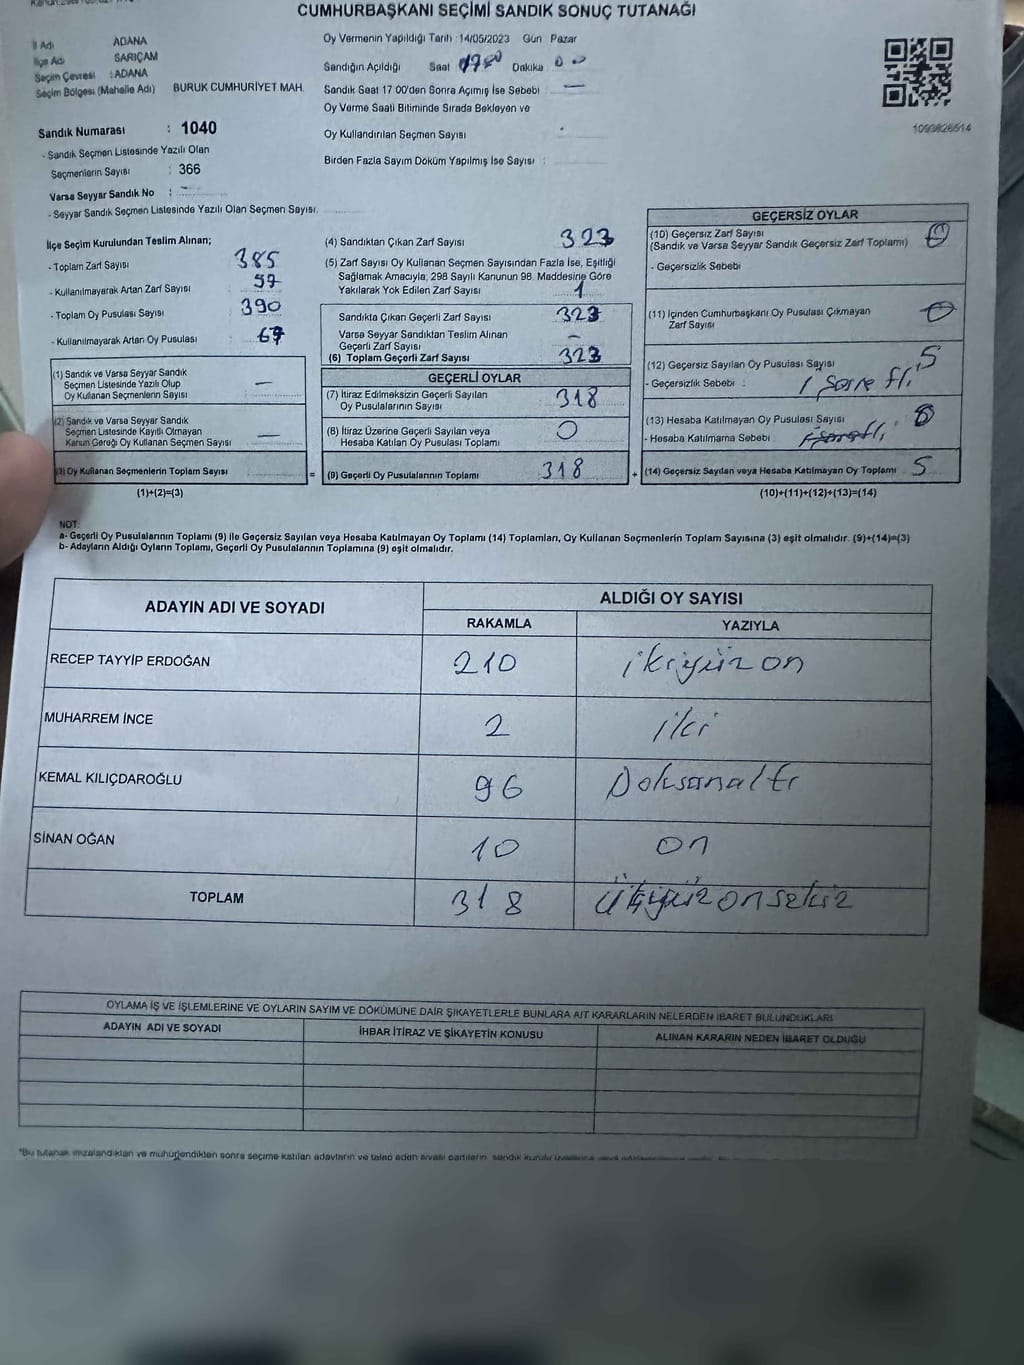 CUMHURBAŞKANI SEÇİMİ SANDIK SONUÇ TUTANAĞI
İl Adı ADANA
İlçe Adı SARIÇAM
Seçim Çevresi : ADANA
Seçim Bölgesi (Mahalle Adı) BURUK CUMHURİYET MAH.
Sandık Numarası : 1040
- Sandık Seçmen Listesinde Yazılı Olan
Seçmenlerin Sayısı : 366
Varsa Seyyar Sandık No : -
- Seyyar Sandık Seçmen Listesinde Yazılı Olan Seçmen Sayısı:
Oy Vermenin Yapıldığı Tarih : 14/05/2023 Gün Pazar
Sandığın Açıldığı Saat Dakika 00
Sandık Saat 17 00'den Sonra Açımış İse Sebebi : —
Oy Verme Saati Bitiminde Sırada Bekleyen ve
Oy Kullandırılan Seçmen Sayısı
Birden Fazla Sayım Döküm Yapılmış İse Sayısı :
1093826514
İlçe Seçim Kurulundan Teslim Alınan;
- Toplam Zarf Sayısı 385
- Kullanılmayarak Artan Zarf Sayısı
- Toplam Oy Pusulası Sayısı 390
- Kullanılmayarak Artan Oy Pusulası 67
(1) Sandık ve Varsa Seyyar Sandık
Seçmen Listesinde Yazılı Olup
Oy Kullanan Seçmenlerin Sayısı —
(2) Sandık ve Varsa Seyyar Sandık
Seçmen Listesinde Kayıtlı Olmayan
Kanun Gereği Oy Kullanan Seçmen Sayısı —
(3) Oy Kullanan Seçmenlerin Toplam Sayısı
(1)+(2)=(3)
(4) Sandıktan Çıkan Zarf Sayısı 323
(5) Zarf Sayısı Oy Kullanan Seçmen Sayısından Fazla İse, Eşitliği
Sağlamak Amacıyla, 298 Sayılı Kanunun 98. Maddesine Göre
Yakılarak Yok Edilen Zarf Sayısı 1
Sandıkta Çıkan Geçerli Zarf Sayısı 323
Varsa Seyyar Sandıktan Teslim Alınan
Geçerli Zarf Sayısı -
(6) Toplam Geçerli Zarf Sayısı 323
GEÇERLİ OYLAR
(7) İtiraz Edilmeksizin Geçerli Sayılan
Oy Pusulalarının Sayısı 318
(8) İtiraz Üzerine Geçerli Sayılan veya
Hesaba Katılan Oy Pusulası Toplamı 0
= (9) Geçerli Oy Pusulalarının Toplamı 318
GEÇERSİZ OYLAR
(10) Geçersiz Zarf Sayısı
(Sandık ve Varsa Seyyar Sandık Geçersiz Zarf Toplamı) 0
- Geçersizlik Sebebi
(11) İçinden Cumhurbaşkanı Oy Pusulası Çıkmayan
Zarf Sayısı 0
(12) Geçersiz Sayılan Oy Pusulası Sayısı 5
- Geçersizlik Sebebi :
(13) Hesaba Katılmayan Oy Pusulası Sayısı
- Hesaba Katılmama Sebebi :
+ (14) Geçersiz Sayılan veya Hesaba Katılmayan Oy Toplamı 5
(10)+(11)+(12)+(13)=(14)
NOT:
a- Geçerli Oy Pusulalarının Toplamı (9) ile Geçersiz Sayılan veya Hesaba Katılmayan Oy Toplamı (14) Toplamları, Oy Kullanan Seçmenlerin Toplam Sayısına (3) eşit olmalıdır. (9)+(14)=(3)
b- Adayların Aldığı Oyların Toplamı, Geçerli Oy Pusulalarının Toplamına (9) eşit olmalıdır.
ADAYIN ADI VE SOYADI
ALDIĞI OY SAYISI
RAKAMLA YAZIYLA
RECEP TAYYİP ERDOĞAN 210 ikiyüz on
MUHARREM İNCE 2 iki
KEMAL KILIÇDAROĞLU 96 Doksanaltı
SİNAN OĞAN 10 on
TOPLAM 318 onsekiz
OYLAMA İŞ VE İŞLEMLERİNE VE OYLARIN SAYIM VE DÖKÜMÜNE DAİR ŞİKAYETLERLE BUNLARA AİT KARARLARIN NELERDEN İBARET BULUNDUKLARI
ADAYIN ADI VE SOYADI İHBAR İTİRAZ VE ŞİKAYETİN KONUSU ALINAN KARARIN NEDEN İBARET OLDUĞU
*Bu tutanak imzalandıktan ve mühürlendikten sonra seçime katılan adayların ve talep eden siyasi partilerin, sandık kurulu